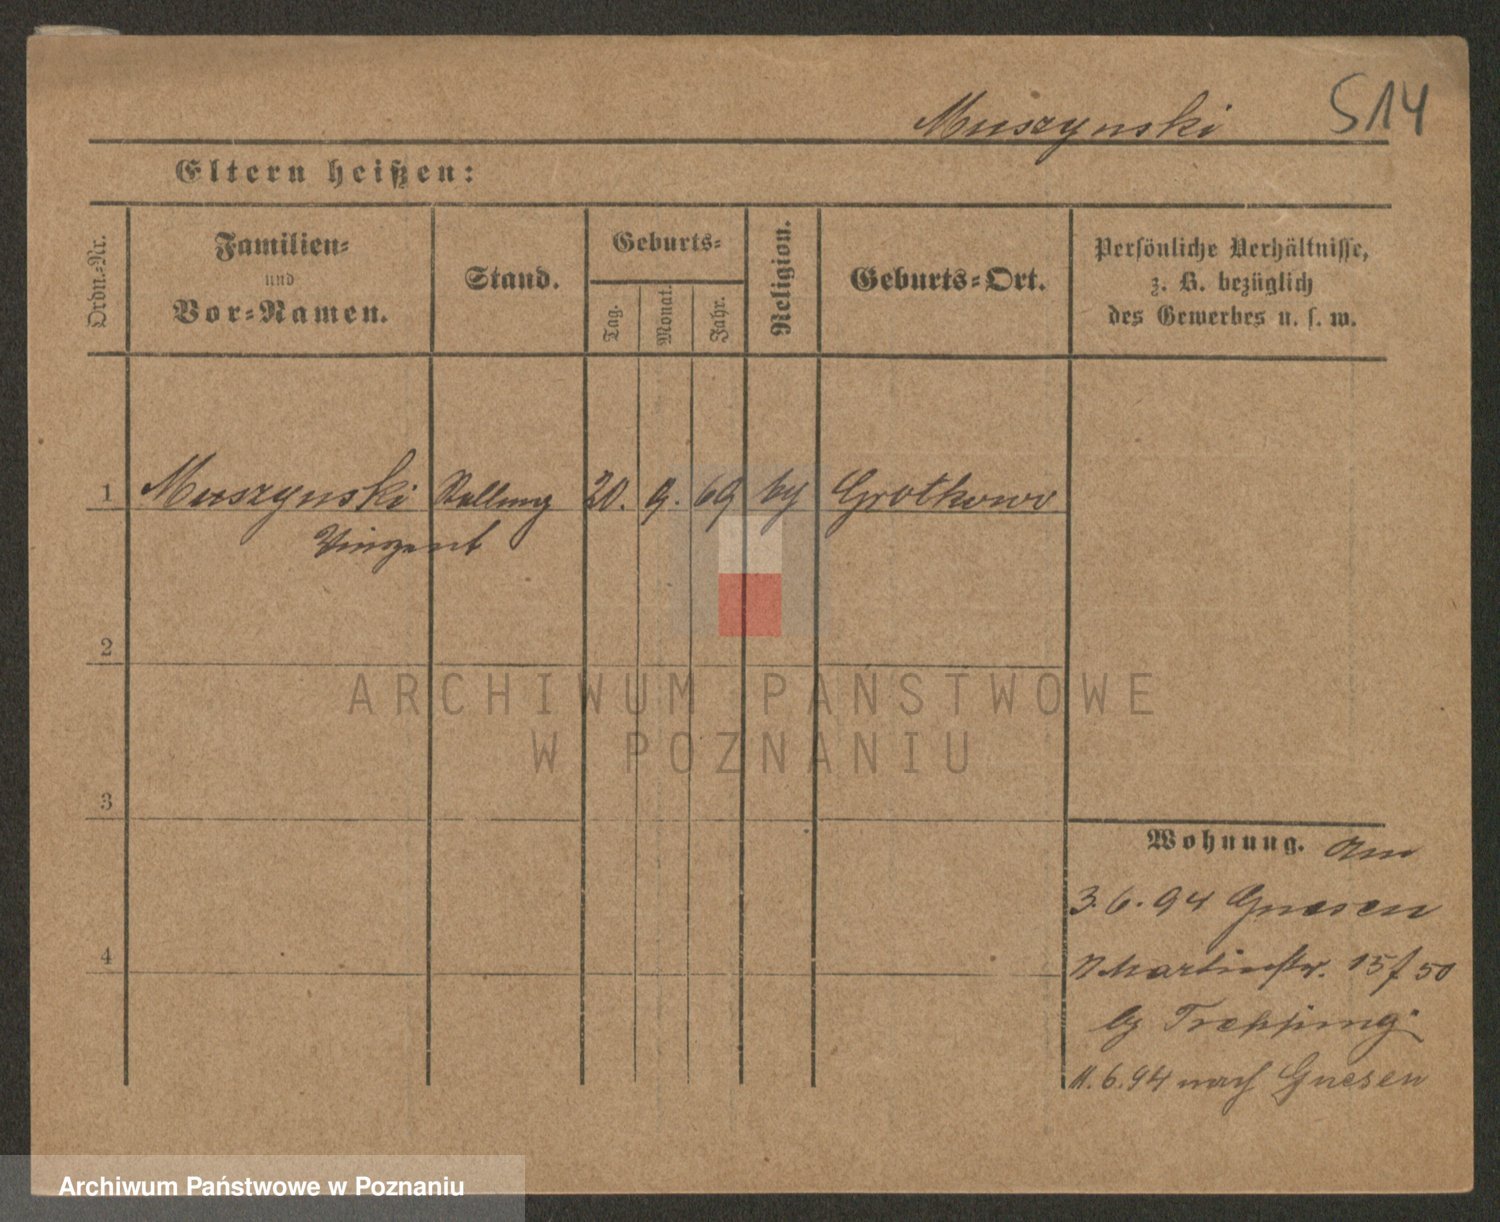 Muszynski 514
Eltern heißen:
Ordn.-Nr.
Familien-
und
Vor-Namen.
Stand.
Geburts-
Tag.
Monat.
Jahr.
Religion.
Geburts-Ort.
Persönliche Verhältnisse,
z. B. bezüglich
des Gewerbes u. s. w.
1 Muszynski 20. 9. 69 Grotkowo
Vinzent
2
ARCHIWUM PAŃSTWOWE
W POZNANIU
3
Wohnung. Am
3.6.94 Gnesen
Martinstr. 15 f 50
4
11.6.94 nach Gnesen
Archiwum Państwowe w Poznaniu